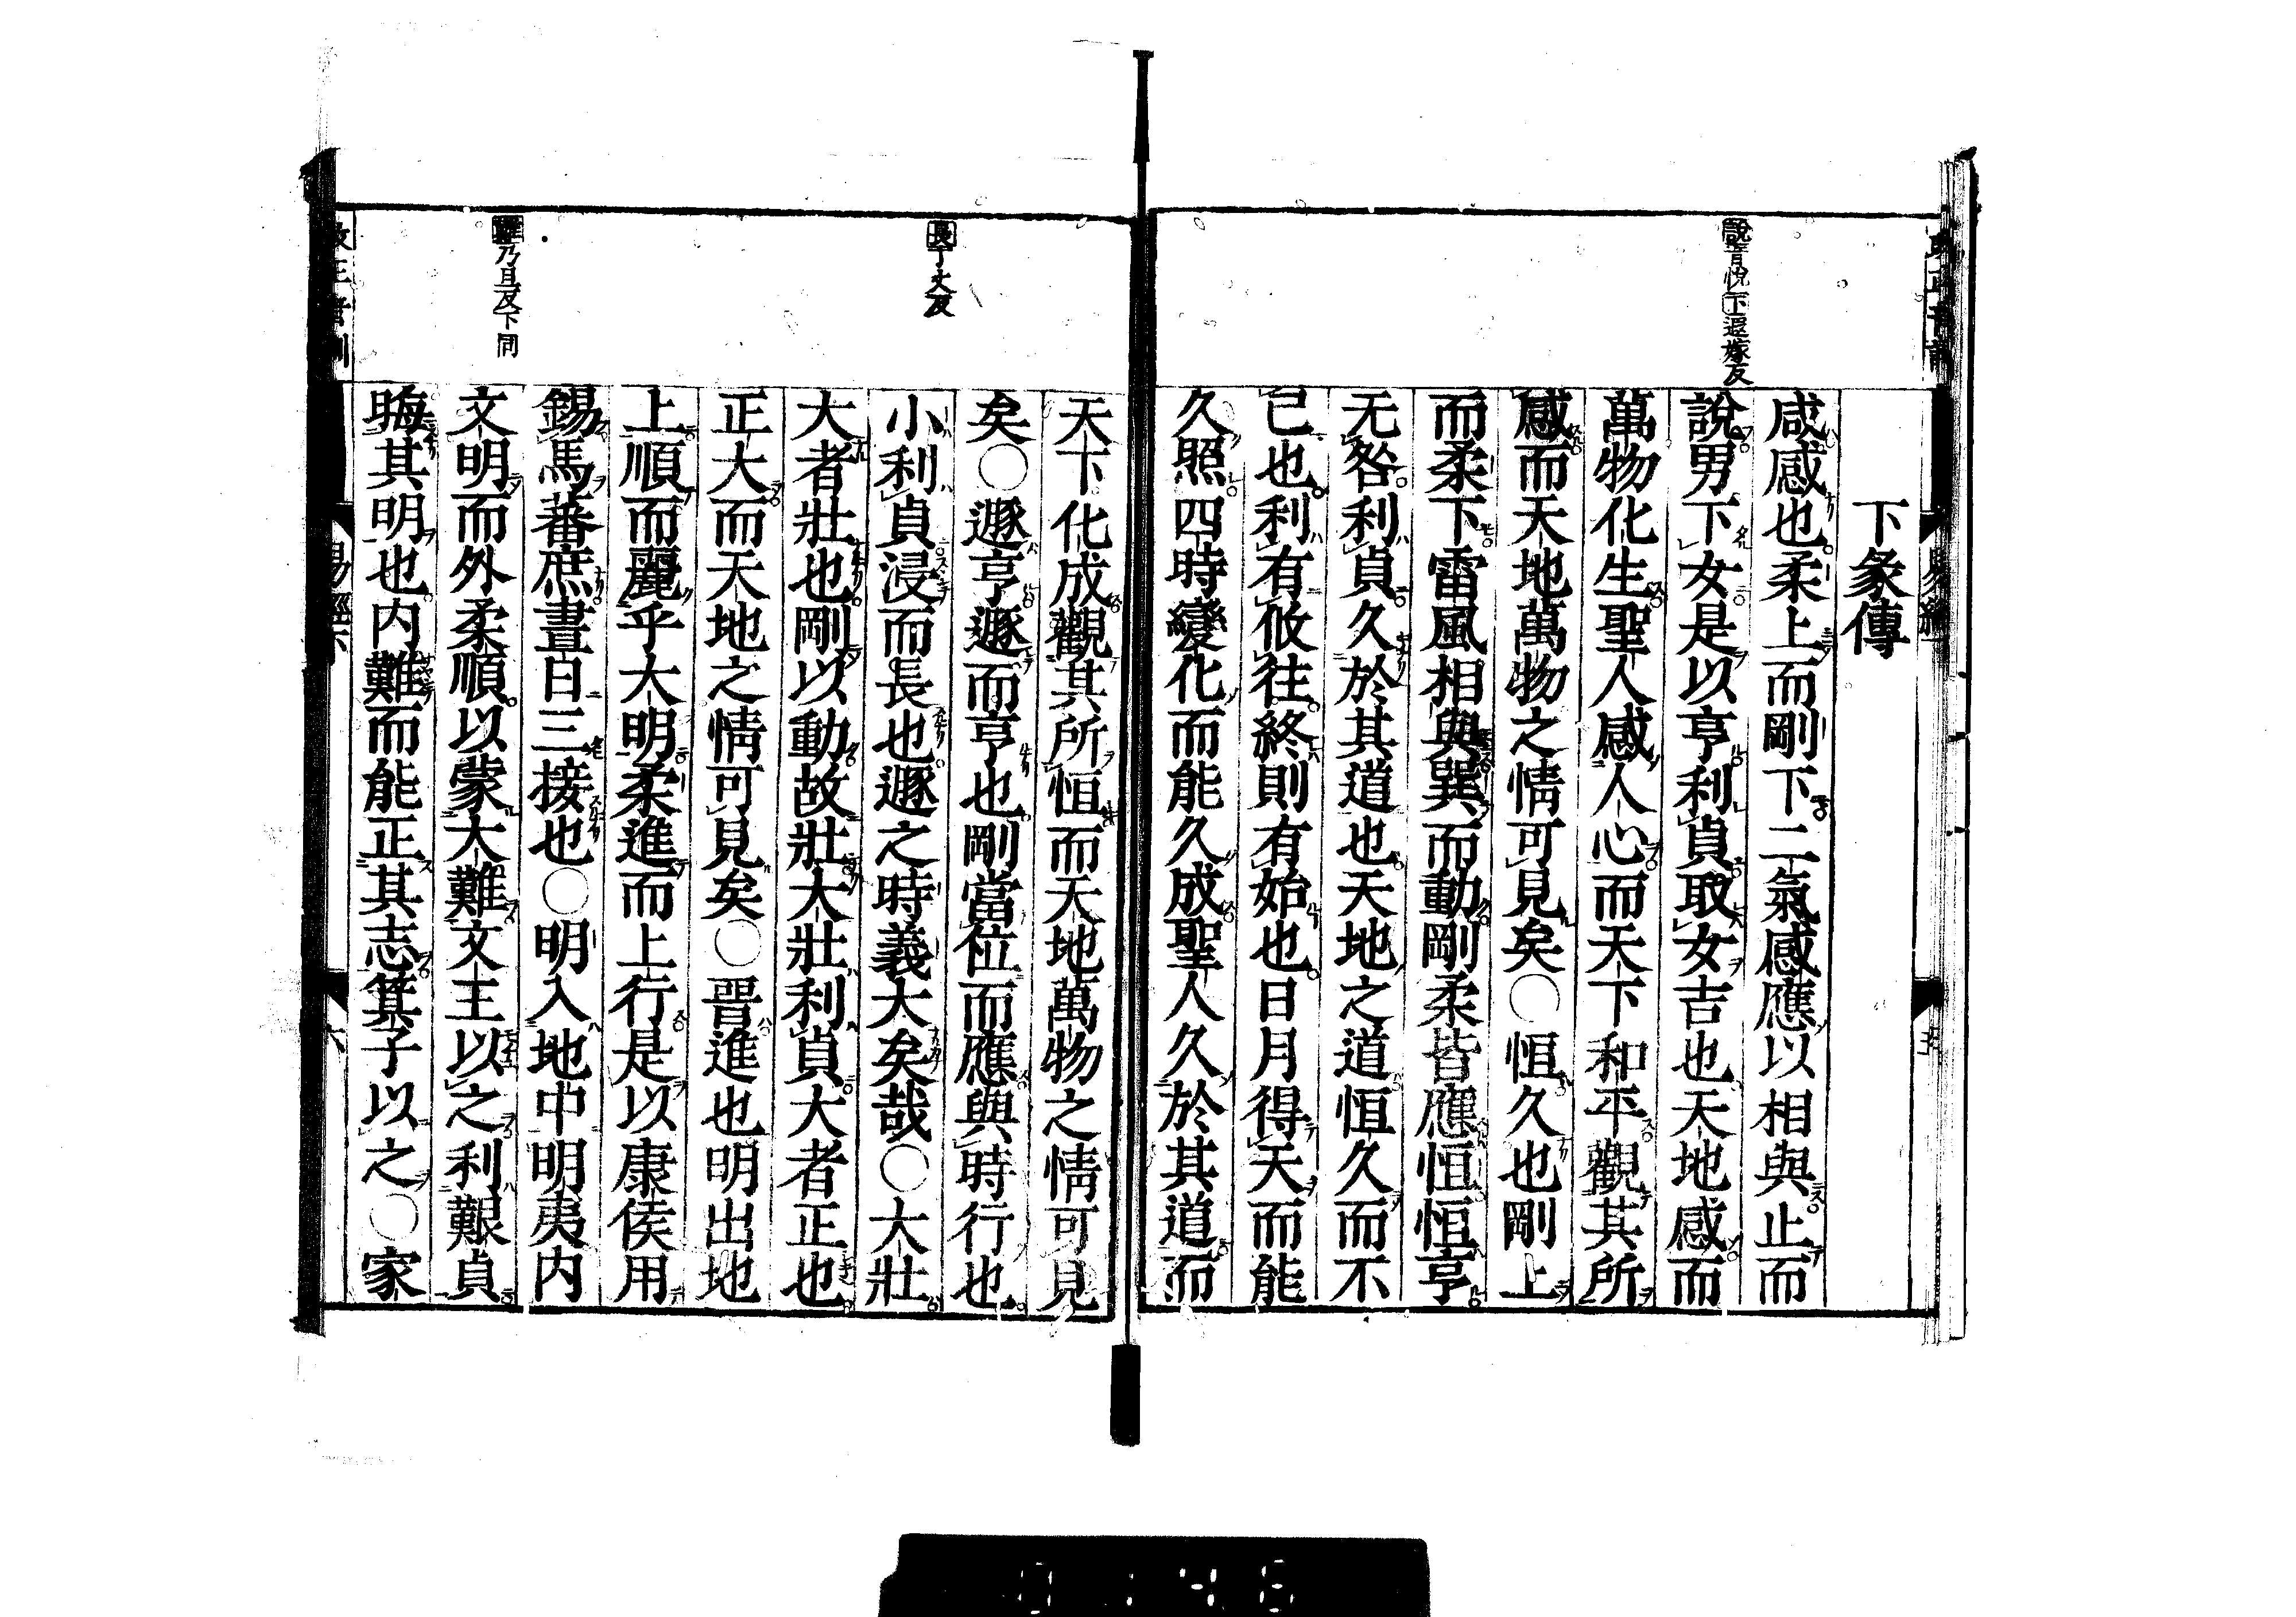 下彖傳
咸感也柔上而剛下二氣感應以相與止而
說男下女是以亨利貞取女吉也天地感而
萬物化生聖人感人心而天下和平觀其所
感而天地萬物之情可見矣○恒久也剛上
而柔下雷風相與巽而動剛柔皆應恒恒亨
无咎利貞久於其道也天地之道恒久而不
已也利有攸往終則有始也日月得天而能
久照四時變化而能久成聖人久於其道而
天下化成觀其所恒而天地萬物之情可見
矣○遯亨遯而亨也剛當位而應與時行也
小利貞浸而長也遯之時義大矣哉○大壯
大者壯也剛以動故壯大壯利貞大者正也
正大而天地之情可見矣○晉進也明出地
上順而麗乎大明柔進而上行是以康侯用
錫馬蕃庶晝日三接也○明入地中明夷內
文明而外柔順以蒙大難文王以之利艱貞
晦其明也內難而能正其志箕子以之○家
說音悅下遐嫁反
長丁丈反
難乃旦反下同
易經下
六
0146